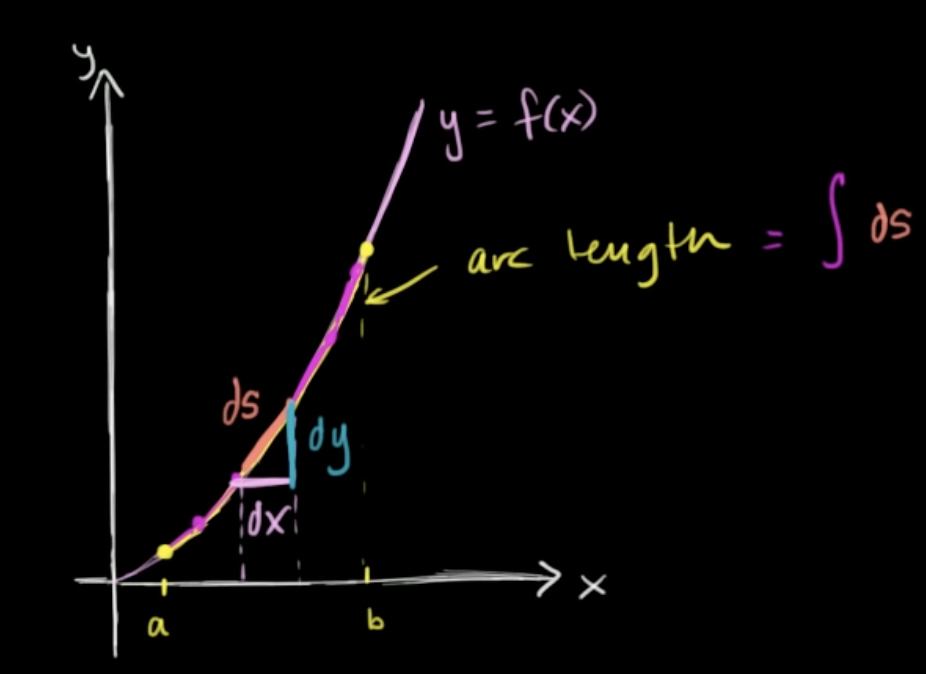 y
y = f(x)
arc length = ∫ ds
ds
dy
dx
x
a
b